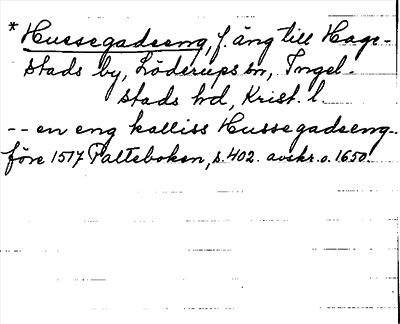 * Hussegadseng, f. äng till Hage-
stads by, Löderups sn, Ingel-
stads hd, Krist. l.
-- en eng kalliss Hussegadseng --
före 1517 Palteboken, s. 402. avskr. o. 1650.